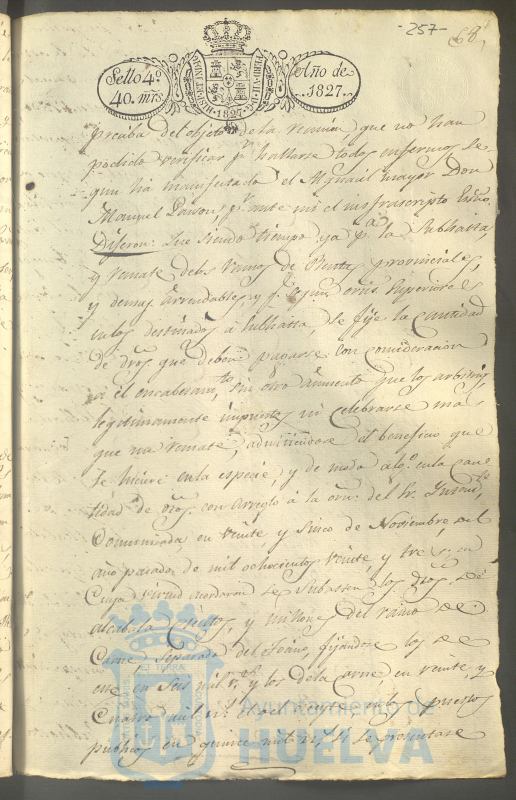 -257-
68
Sello 4º
40. mrs.
HISPANIARUM
1827
FERD. VII
Año de
1827.
del objeto de la reunion que no han
podido verificar pr. hallarse todos enfermos se-
gun ha manifestado el Alguacil mayor Don
Manuel pr. ante mi el infrascripto Esno.
Dijeron: Que siendo tiempo ya pª la subhasta,
y remate delos Ramos de Rentas provinciales,
y demas arrendables, y pr. superiores
destinados á subhasta, se fije la cantidad
de dros que deben pagarse con consideracion
a el encabezamto, sin otro aumento que los arbitrios
legitimamente impuestos ni celebrarse mas
que un remate, admitiendose el beneficio que
se hiciere en la especie, y de modo algo. en la can-
tidad de dros con arreglo á la orn. del Sr. Intend.te
Comunicada en veinte, y sinco de Noviembre, del
año pasado de mil ochocientos veinte, y tres, en
Cuya virtud acordaron se subasten los dros, de
alcabala Cientos, y millones del ramo de
Carne separado del fijandose los de
este en seis mil rs. y los dela carne en veinte y
Cuatro mil rs. el de puestos
publicos en quince mil rs, si se presentare
Ayuntamiento de
HUELVA